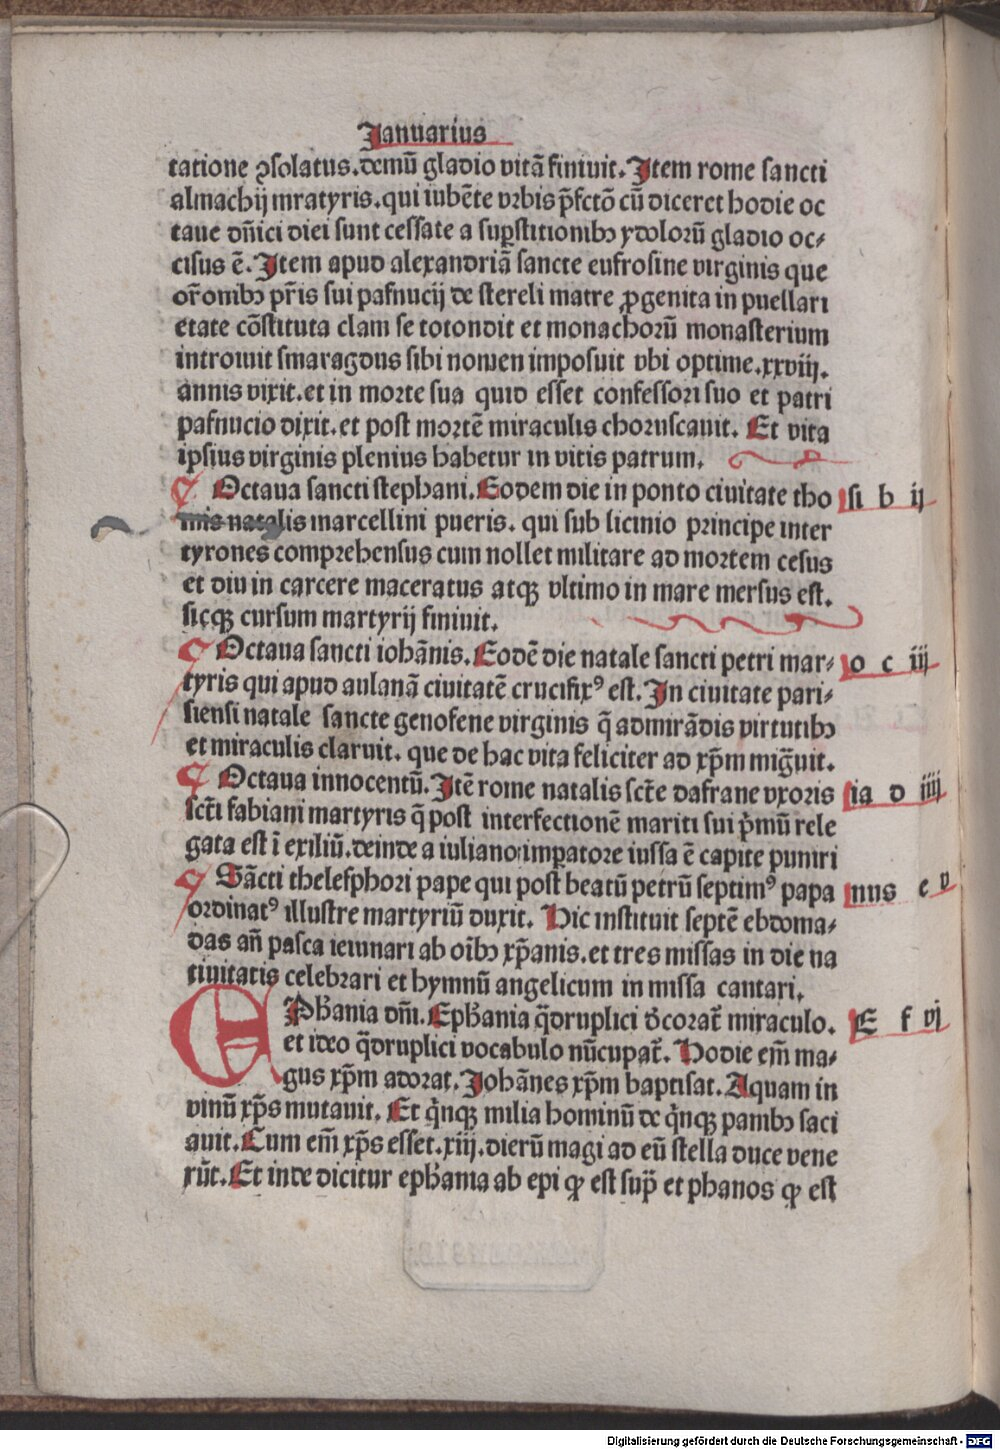 Januarius
tatione ꝯsolatus. demū gladio vitā finiuit. Item rome sancti
almachij mratyris. qui iubēte vrbis p̄fctō cū diceret hodie oc
taue dn̄ici diei sunt cessate a suꝑstitionibꝫ ydolorū gladio oc⸗
cisus ē. Item apud alexandriā sancte eufrosine virginis que
or̄onibꝫ pr̄is sui pafnucij de stereli matre ꝓgenita in puellari
etate cōstituta clam se totondit et monachorū monasterium
introiuit smaragdus sibi nomen imposuit vbi optime. xxviij.
annis vixit. et in morte sua quid esset confessori suo et patri
pafnucio dixit. et post mortē miraculis choruscauit. Et vita
ipsius virginis plenius habetur in vitis patrum.
Octaua sancti stephani. Eodem die in ponto ciuitate tho si b ij
mis natalis marcellini pueris. qui sub licinio principe inter
tyrones comprehensus cum nollet militare ad mortem cesus
et diu in carcere maceratus atqꝫ vltimo in mare mersus est.
sicqꝫ cursum martyrij finiuit.
Octaua sancti iohānis. Eodē die natale sancti petri mar⸗ o c iij
tyris qui apud aulanā ciuitatē crucifixꝰ est. In ciuitate pari⸗
siensi natale sancte genofene virginis q̄ admirādis virtutibꝫ
et miraculis claruit. que de hac vita feliciter ad xp̄m mig̃uit.
Octaua innocentū. Itē rome natalis scte dafrane vxoris ia d iiij
scti fabiani martyris q̄ post interfectionē mariti sui p̄mū rele
gata est ī exiliū. deinde a iuliano imꝑatore iussa ē capite puniri
Sācti thelesphori pape qui post beatū petrū septimꝰ papa nus e v
ordinatꝰ illustre martyriū duxit. Hic instituit septē ebdoma⸗
das an̄ pasca ieiunari ab oībꝫ xp̄anis. et tres missas in die na
tiuitatis celebrari et hymnū angelicum in missa cantari.
EPhania dn̄i. Ephania q̄druplici decorat̄ miraculo. E f vj
et ideo q̄druplici vocabulo nūcupat̄. Hodie em̄ ma⸗
gus xp̄m adorat. Johānes xp̄m baptisat. Aquam in
vinū xp̄s mutauit. Et q̇nqꝫ milia hominū de q̇nqꝫ panibꝫ saci
auit. Cum em̄ xp̄s esset. xiij. dierū magi ad eū stella duce vene
rūt. Et inde dicitur ephania ab epi qꝫ est sup̄ et phanos qꝫ est
Digitalisierung gefördert durch die Deutsche Forschungsgemeinschaft - DFG